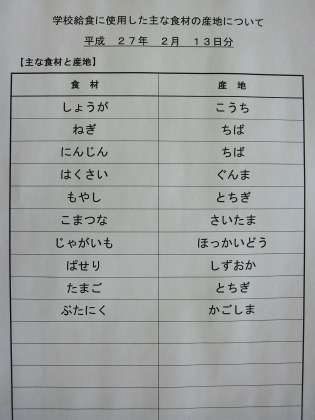 学校給食に使用した主な食材の産地について
平成　２７年　２月　１３日分
【主な食材と産地】
食　材　産　地
しょうが　こうち
ねぎ　ちば
にんじん　ちば
はくさい　ぐんま
もやし　とちぎ
こまつな　さいたま
じゃがいも　ほっかいどう
ぱせり　しずおか
たまご　とちぎ
ぶたにく　かごしま